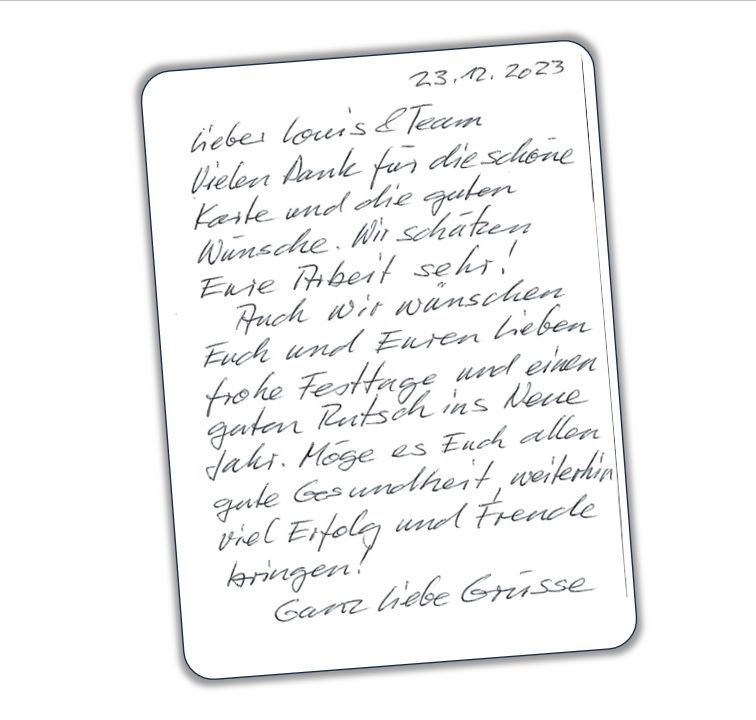 23.12.2023
Lieber Louis & Team
Vielen Dank für die schöne
Karte und die guten
Wünsche. Wir schätzen
Eure Arbeit sehr!
Auch wir wünschen
Euch und Euren Lieben
frohe Festtage und einen
guten Rutsch ins Neue
Jahr. Möge es Euch allen
gute Gesundheit, weiterhin
viel Erfolg und Freude
bringen!
Ganz liebe Grüsse